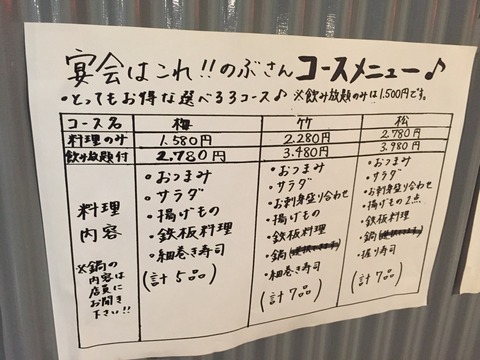 宴会はこれ!!のぶさんコースメニュー♪
・とってもお得な選べる3コース♪ ※飲み放題のみは1.500円です。
コース名 梅 竹 松
料理のみ 1.580円 2.280円 2.780円
飲み放題付 2.780円 3.480円 3.980円
料理内容
※鍋の
内容は
店員に
お聞き
下さい!!
・おつまみ
・サラダ
・揚げもの
・鉄板料理
・細巻き寿司
(計5品)
・おつまみ
・サラダ
・お刺身盛り合わせ
・揚げもの
・鉄板料理
・鍋
・細巻き寿司
(計7品)
・おつまみ
・サラダ
・お刺身盛り合わせ
・揚げもの2点
・鉄板料理
・鍋
・握り寿司
(計7品)